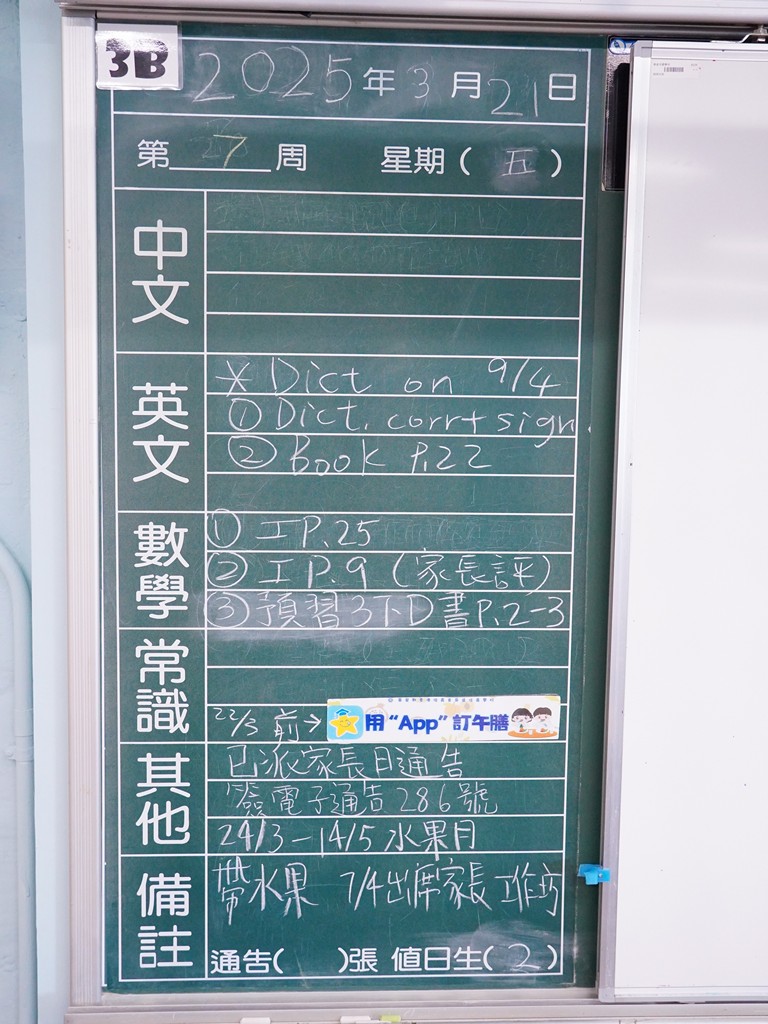 3B
2025年3月21日
第 7 周 星期(五)
中文
英文
* Dict on 9/4
① Dict. corr+sign.
② Book P.22
數學
① 工P.25
② 工P.9 (家長評)
③ 預習3下D書P.2-3
常識
22/3 前→ 用“App”訂午膳
其他
已派家長日通告
簽電子通告286號
24/3-14/5 水果月
備註
帶水果 7/4出席家長工作坊
通告( )張 值日生(2)